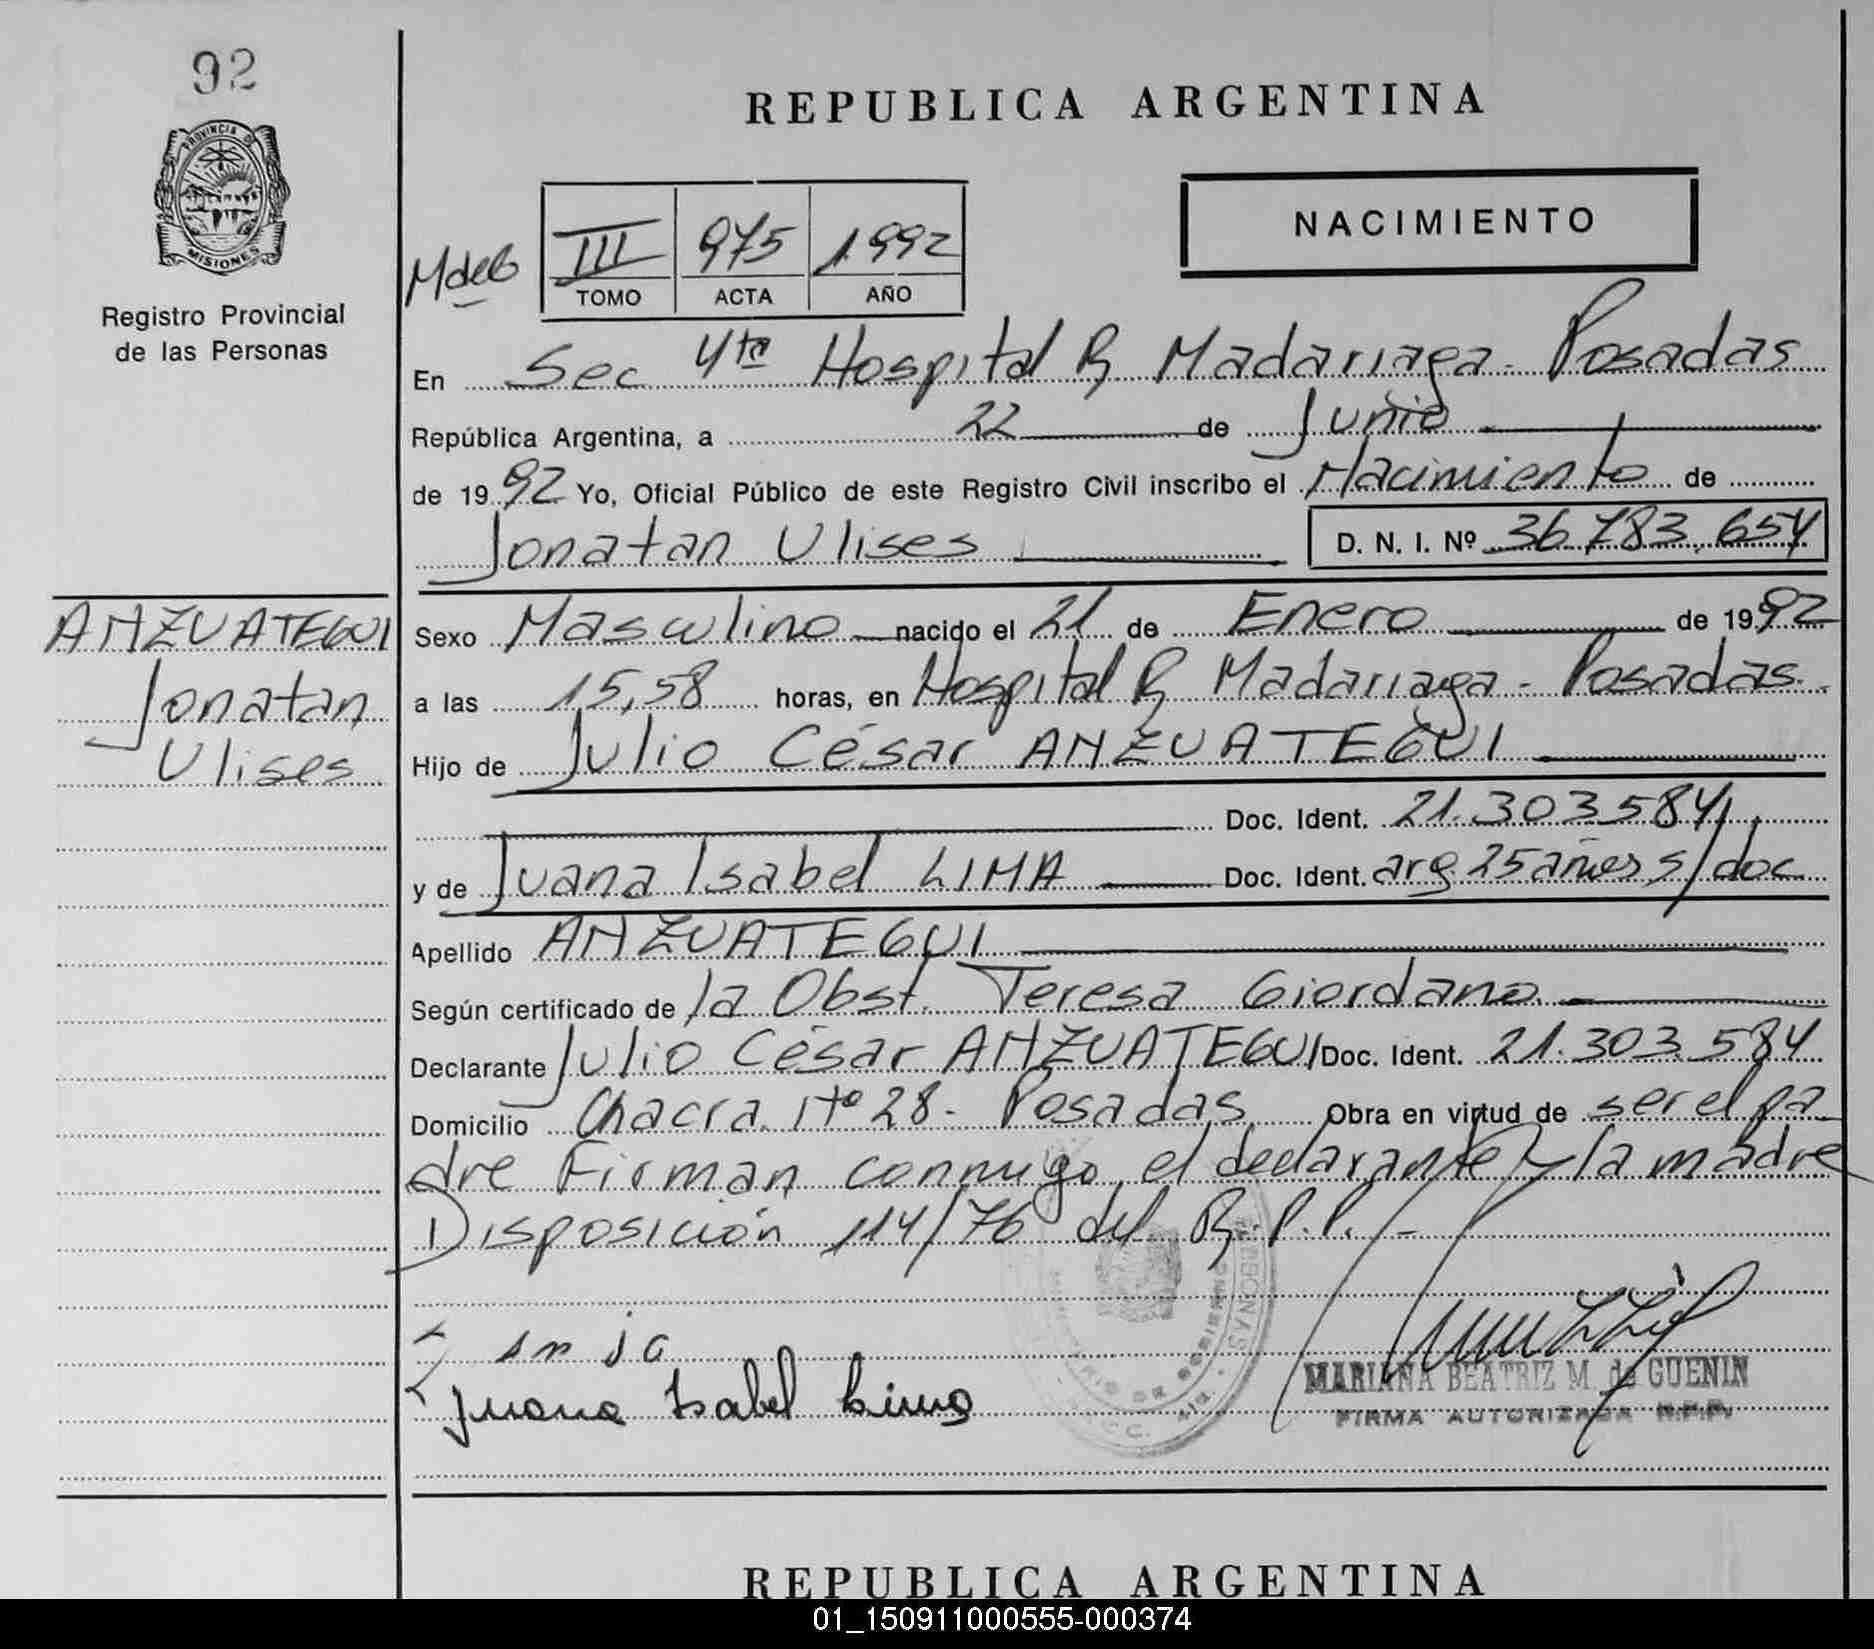 92
PROVINCIA DE
MISIONES
Registro Provincial
de las Personas
REPUBLICA ARGENTINA
NACIMIENTO
III 975 1992
TOMO ACTA AÑO
En Sec 4ta Hospital R Madariaga - Posadas
República Argentina, a 22 de Junio
de 1992 Yo, Oficial Público de este Registro Civil inscribo el Nacimiento de
Jonatan Ulises D. N. I. Nº 36.783.654
ANZUATEGUI
Jonatan
Ulises
Sexo Masculino nacido el 21 de Enero de 1992
a las 15,58 horas, en Hospital R Madariaga - Posadas.
Hijo de Julio César ANZUATEGUI
Doc. Ident. 21.303.584
y de Juana Isabel LIMA Doc. Ident. arg 25 años s/doc
Apellido ANZUATEGUI
Según certificado de la Obst. Teresa Giordano
Declarante Julio César ANZUATEGUI Doc. Ident. 21.303.584
Domicilio Chacra Nº 28 - Posadas Obra en virtud de ser el pa
dre Firman conmigo, el declarante y la madre
Disposición 114/76 del R.P.P. -
Juana Isabel Lima
MARIANA BEATRIZ M. de GUENIN
FIRMA AUTORIZADA R.P.P.
REPUBLICA ARGENTINA
01_150911000555-000374